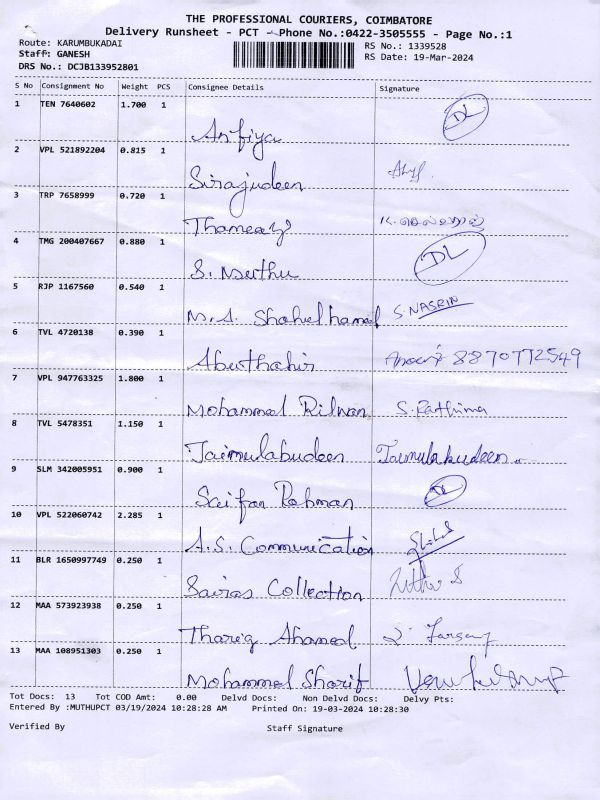 THE PROFESSIONAL COURIERS, COIMBATORE
Delivery Runsheet - PCT - Phone No.:0422-3505555 - Page No.:1
Route: KARUMBUKADAI RS No.: 1339528
Staff: GANESH RS Date: 19-Mar-2024
DRS No.: DCJB133952801
S No Consignment No Weight PCS Consignee Details Signature
1 TEN 7640602 1.700 1 DL
Arfiya
2 VPL 521892204 0.815 1
Sirajudeen
3 TRP 7658999 0.720 1
4 TMG 200407667 0.880 1 DL
S. Muthu
5 RJP 1167560 0.540 1 S. NASRIN
M.S. Shahulhameed
6 TVL 4720138 0.390 1 8870772549
Abuthahir
7 VPL 947763325 1.800 1
Mohammed Rilwan S. Fathima
8 TVL 5478351 1.150 1
Jaimulabudeen Jaimulabudeen
9 SLM 342005951 0.900 1 DL
Saifan Rahman
10 VPL 522060742 2.285 1
A.S. Communication
11 BLR 1650997749 0.250 1
Sairas Collection
12 MAA 573923938 0.250 1
Thariq Ahamed
13 MAA 108951303 0.250 1
Mohammed Sharif
Tot Docs: 13 Tot COD Amt: 0.00 Delvd Docs: Non Delvd Docs: Delvy Pts:
Entered By :MUTHUPCT 03/19/2024 10:28:28 AM Printed On: 19-03-2024 10:28:30
Verified By Staff Signature